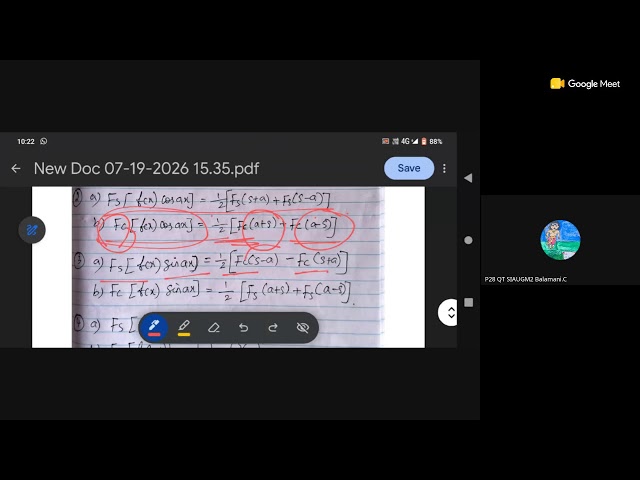 Google Meet
10:22 4G 88%
New Doc 07-19-2026 15.35.pdf Save
② a) Fs[f(x) cosax] = 1/2[Fs(s+a) + Fs(s-a)]
b) Fc[f(x) cosax] = 1/2[Fc(a+s) + Fc(a-s)]
③ a) Fs[f(x) sinax] = 1/2[Fc(s-a) - Fc(s+a)]
b) Fc[f(x) sinax] = 1/2[Fs(a+s) + Fs(a-s)].
④ a) Fs[
P28 QT SIAUGM2 Balamani.C